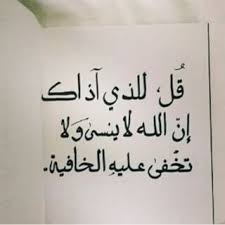 قُل، للذي آذاك
إنّ الله لا ينسىٰ وَلا
تخفىٰ عليهِ الخافية.